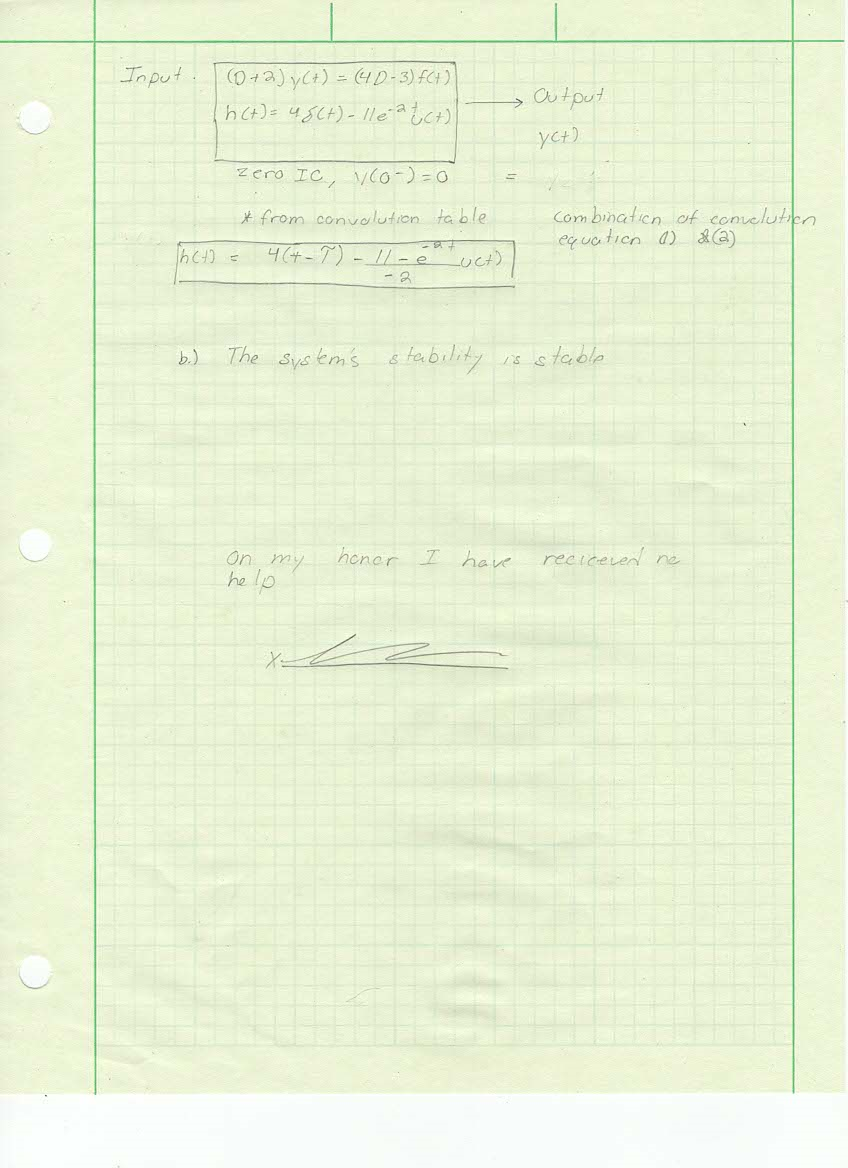 Input. (D+2) y(t) = (4D-3) f(t)
h(t) = 4δ(t) - 11e^-2t u(t)
→ Output
y(t)
zero IC, y(0-) = 0 =
* from convolution table
combination of convolution
equation (1) &(2)
h(t) = 4(t-T) - 11-e^-2t/-2 u(t)
b.) The system's stability is stable
On my honor I have recieeved no
help
X